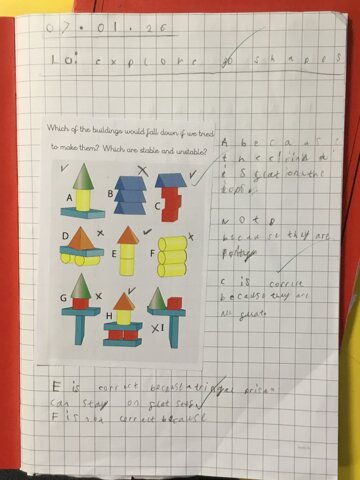 07.01.26
Lo: explore 3D shapes
Which of the buildings would fall down if we tried
to make them? Which are stable and unstable?
A
B
C
D
E
F
G
H
I
A because
the
is flat on the
top.
Not D
because they are
C is correct
because they are
E is correct because a prism
can stay on flat
F is not correct because